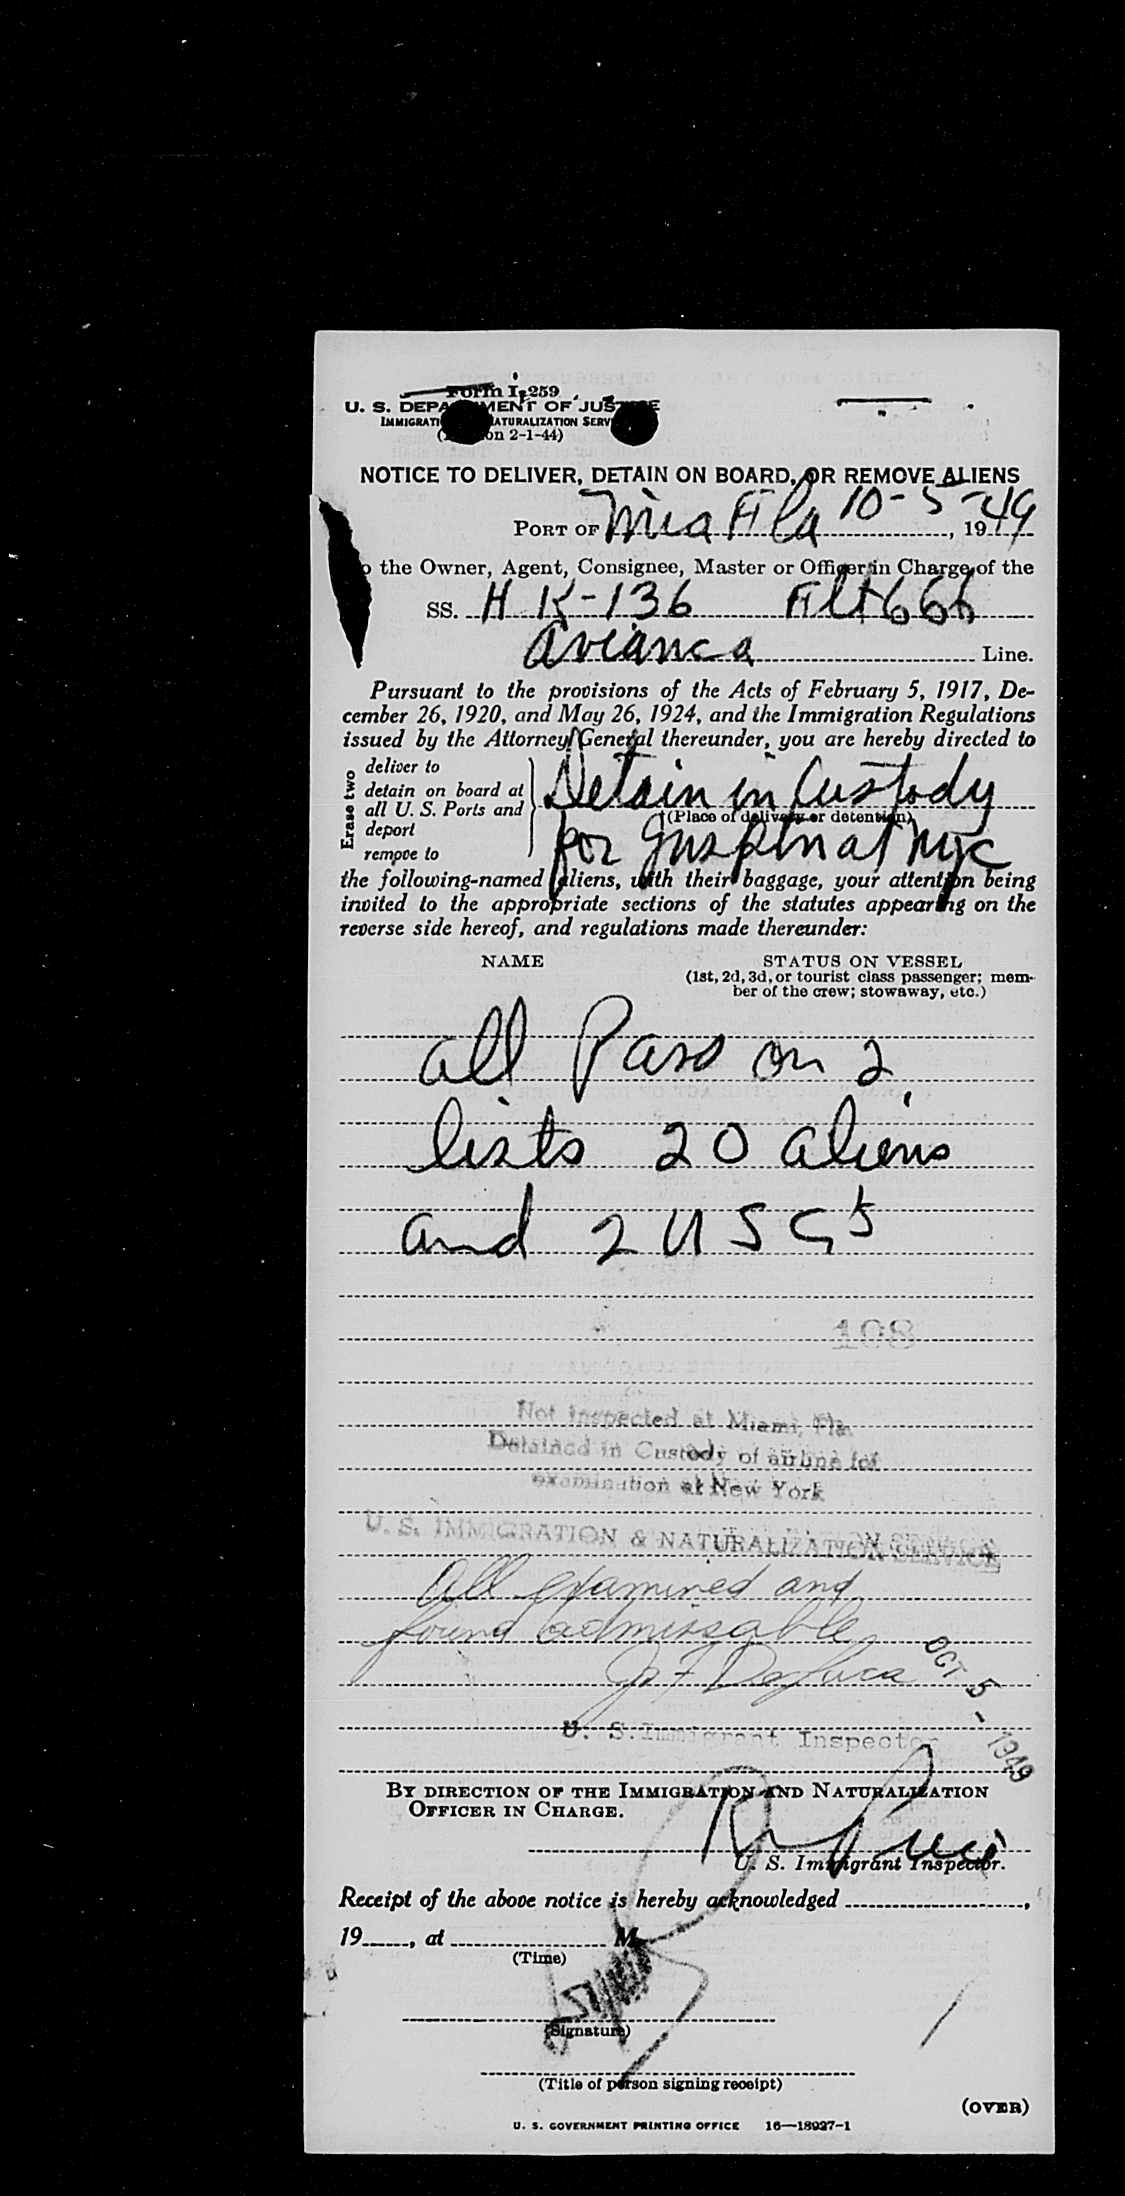 Form I-259
U. S. DEPARTMENT OF JUSTICE
IMMIGRATION NATURALIZATION SERV
on 2-1-44)
NOTICE TO DELIVER, DETAIN ON BOARD, OR REMOVE ALIENS
PORT OF Mia Fla 10-5-, 1949
o the Owner, Agent, Consignee, Master or Officer in Charge of the
SS. HK-136 Flt 666
Avianca Line.
Pursuant to the provisions of the Acts of February 5, 1917, De-
cember 26, 1920, and May 26, 1924, and the Immigration Regulations
issued by the Attorney General thereunder, you are hereby directed to
Erase two
deliver to
detain on board at
all U. S. Ports and
deport
remove to
Detain in Custody
(Place of delivery or detention)
for Inspln at NYC
the following-named aliens, with their baggage, your attention being
invited to the appropriate sections of the statutes appearing on the
reverse side hereof, and regulations made thereunder:
NAME STATUS ON VESSEL
(1st, 2d, 3d, or tourist class passenger; mem-
ber of the crew; stowaway, etc.)
all Pass on 2
lists 20 aliens
and 2 USCs
108
Not Inspected at Miami, Fla.
Detained in Custody of airline for
examination at New York
U. S. IMMIGRATION & NATURALIZATION SERVICE
All examined and
found admissable
Jos F DeLuca
OCT 5 - 1949
U. S. Immigrant Inspector
BY DIRECTION OF THE IMMIGRATION AND NATURALIZATION
OFFICER IN CHARGE.
U. S. Immigrant Inspector.
Receipt of the above notice is hereby acknowledged ,
19 , at M.
(Time)
(Signature)
(Title of person signing receipt)
(OVER)
U. S. GOVERNMENT PRINTING OFFICE 16—18927-1